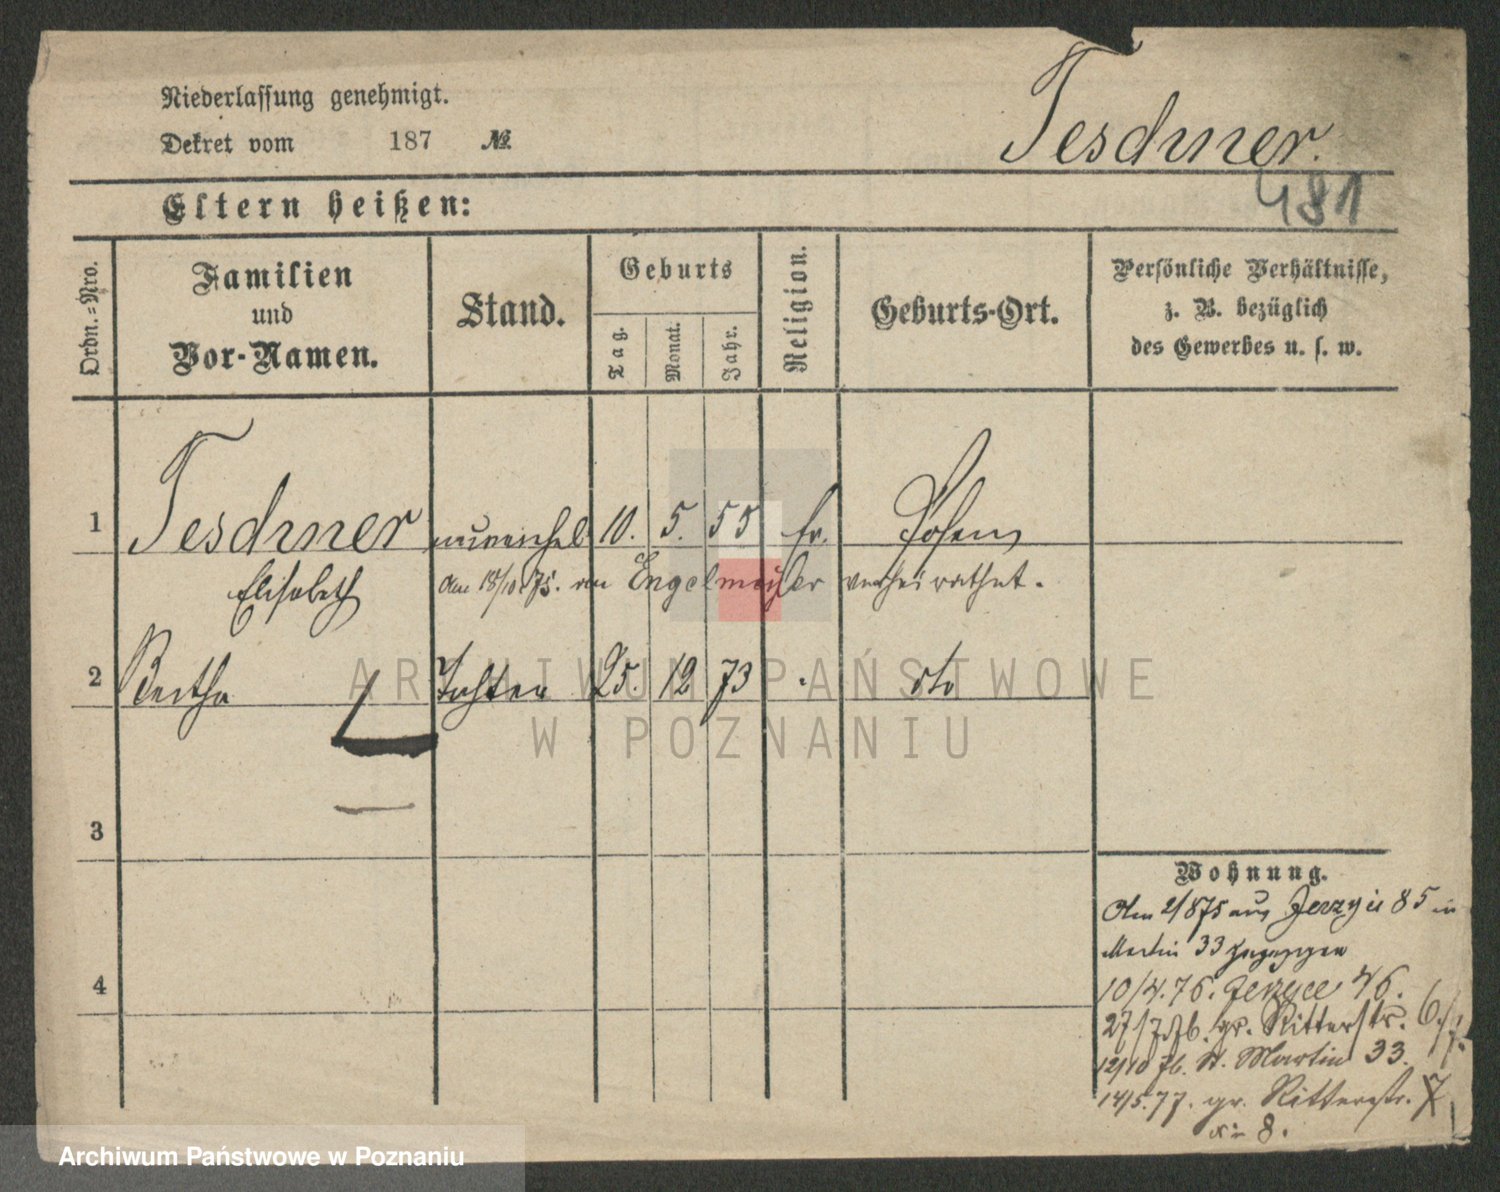 Niederlassung genehmigt.
Dekret vom 187 №.
Teschner.
481
Eltern heißen:
Ordn.=Nro.
Familien
und
Vor-Namen.
Stand.
Geburts
Tag.
Monat.
Jahr.
Religion.
Geburts-Ort.
Persönliche Verhältnisse,
z. B. bezüglich
des Gewerbes u. s. w.
1 Teschner unverehel. 10. 5. 55 Posen
Elisabeth
am 18/10 75. verheirathet.
2 Bertha Tochter 25. 12 73 dto
3
4
Wohnung.
Am 2/8 75 aus Jerzyce 85 in
Martin 33 gezogen
10/4. 76. Jerzyce 46.
27/7 76. gr. Ritterstr. 6.
12/10 76. St. Martin 33.
14/5. 77. gr. Ritterstr. 7
8.
ARCHIWUM PAŃSTWOWE
W POZNANIU
Archiwum Państwowe w Poznaniu